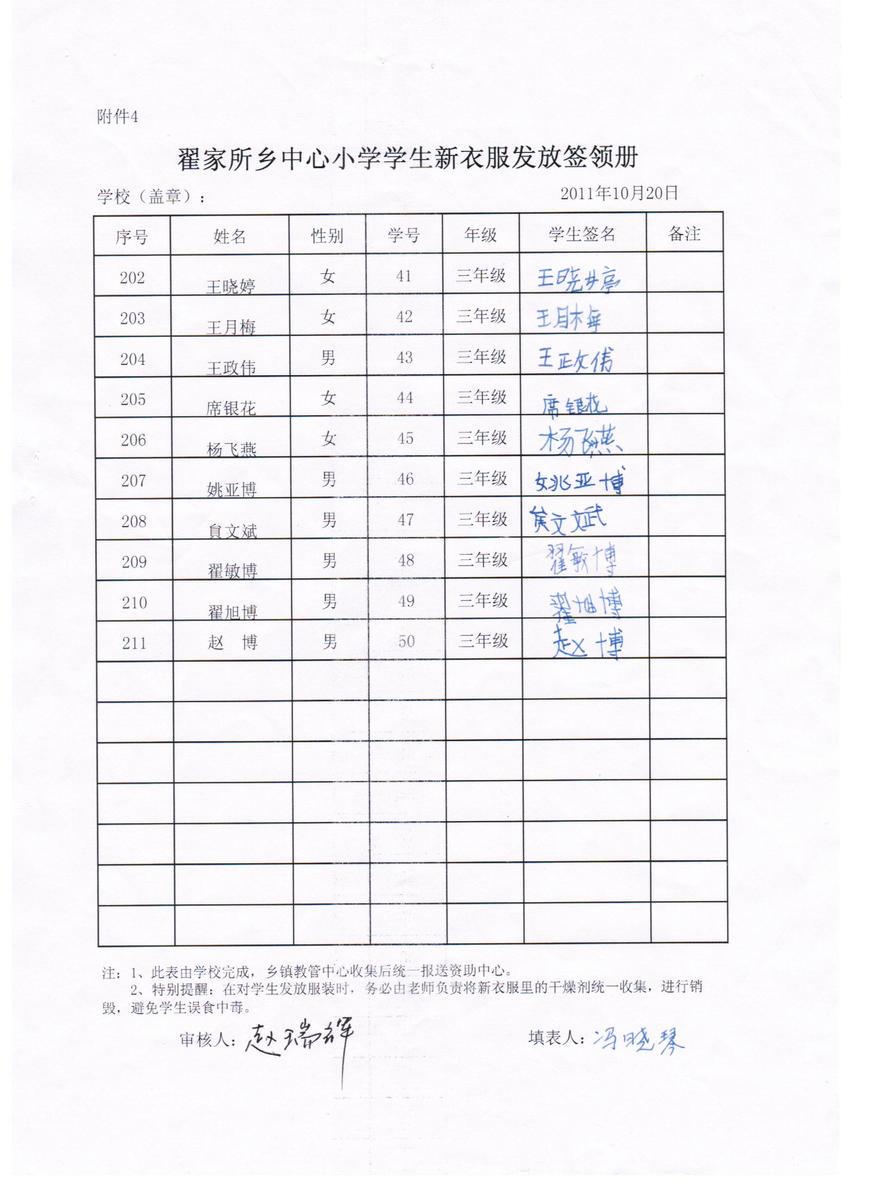 附件4
翟家所乡中心小学学生新衣服发放签领册
学校（盖章）： 2011年10月20日
序号 姓名 性别 学号 年级 学生签名 备注
202 王晓婷 女 41 三年级 王晓婷
203 王月梅 女 42 三年级 王月梅
204 王政伟 男 43 三年级 王政伟
205 席银花 女 44 三年级 席银花
206 杨飞燕 女 45 三年级 杨飞燕
207 姚亚博 男 46 三年级 姚亚博
208 文斌 男 47 三年级 文斌
209 翟敏博 男 48 三年级 翟敏博
210 翟旭博 男 49 三年级 翟旭博
211 赵 博 男 50 三年级 赵博
注：1、此表由学校完成，乡镇教管中心收集后统一报送资助中心。
2、特别提醒：在对学生发放服装时，务必由老师负责将新衣服里的干燥剂统一收集，进行销
毁，避免学生误食中毒。
审核人：赵瑞辉 填表人：冯晓琴